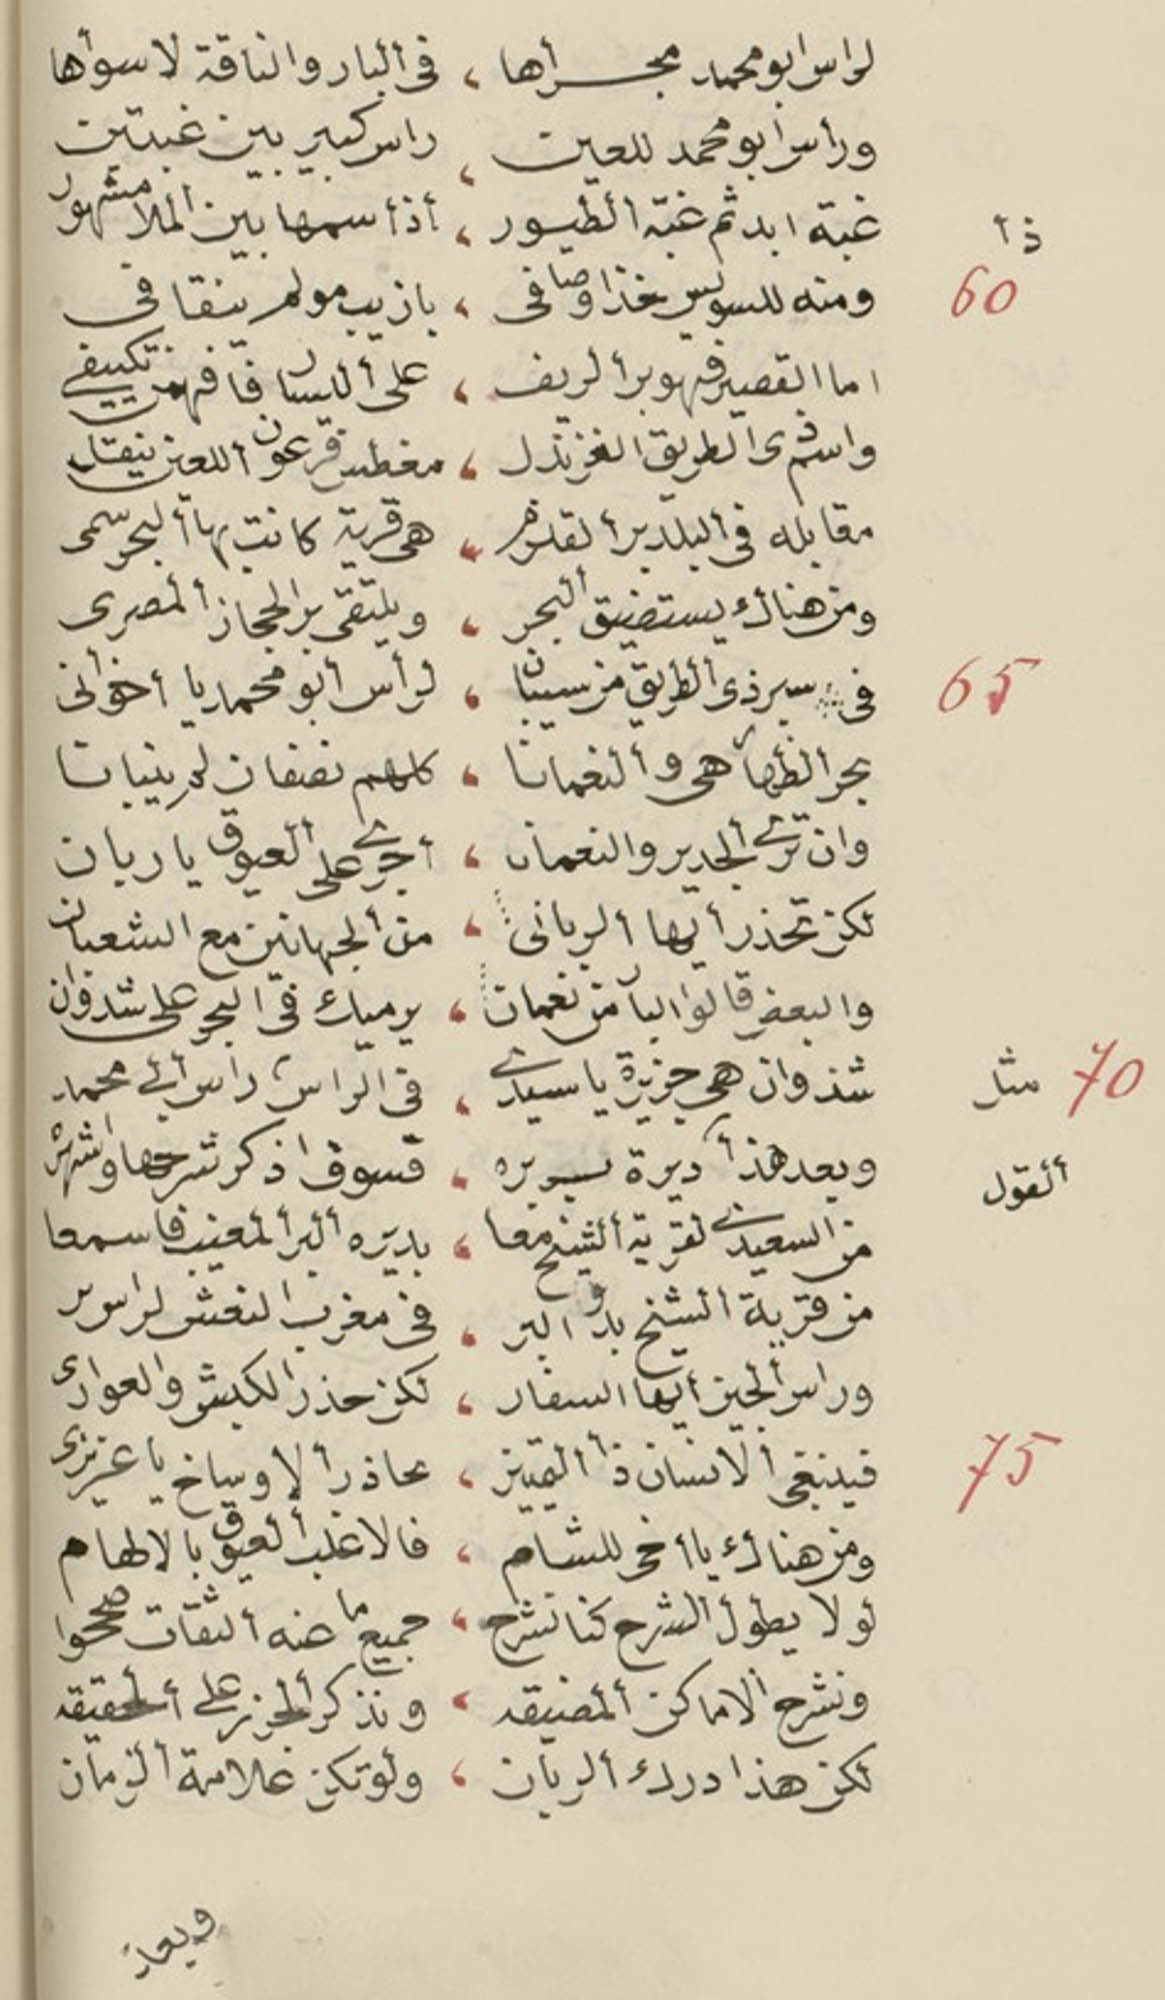 لراس ابو محمد مجراها ، في البار والناقة لا سوأها
وراس ابو محمد للعين ، راس كبير بين غبتين
غبة ابد ثم غبة الطيور ، أذا سمها بين الملا مشهور
ذا
60
ومنه للسويس خذ اوصافى ، بازيب مولم بنقافى
اما القصير فهو بر الريف ، على اليسار فافهمن تكييفي
واسم ذى الطريق الغرندل ، مغطس فرعون اللعين ينقل
مقابله في البلد بر القلزم ، هى قرية كانت بها البحر سمى
ومن هناك يستضيق البحر ، ويلتقى بر الحجاز المصرى
65
فى سير ذى الطريق من سيبان ، لرأس أبو محمد يا أخوانى
بحر الظهار هى والنعمانا ، كلهم نصفان لم ينبانا
وان ترى الجدير والنعمان ، أجرى على العيوق يا ربان
لكن تحذر أيها الربانى ، من الجهانين مع الشعبان
والبعض قالوا البار من نعمان ، يرميك فى البحر على شدوان
70
شذوان هى جزيرة يا سيدى ، فى الراس راس أبي محمد
مثل
وبعد هذا ديرة بربره ، فسوف اذكر شرحها واشهره
ألقول
من السعيدى لقرية الشيخ معا ، بديره البر المغيب فاسمعا
من قرية الشيخ بدو البر ، فى مغرب النعش لراس بر
وراس الجين أيها السفار ، لكن حذر الكبش والعوارى
75
فينبغى ألانسان ذا التمييز ، يحاذر ألاوساخ يا عزيزى
ومن هناك يا أخى للشام ، فالاغلب العيوق بالالهام
لولا يطول الشرح كنا نشرح ، جميع ما عنه الثقات صححوا
ونشرح الاماكن المضيقه ، ونذكر الجزر على الحقيقه
لكن هذا درك الربان ، ولو تكن علامة الزمان
وبعد